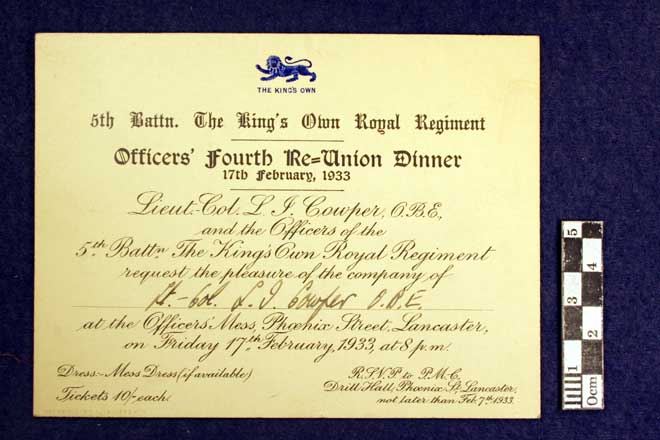 THE KING'S OWN
5th Battn. The King's Own Royal Regiment
Officers' Fourth Re=Union Dinner
17th February, 1933
Lieut.-Col. L. J. Cowper, O.B.E.,
and the Officers of the
5th Battn. The King's Own Royal Regiment
request the pleasure of the company of
Lt.-Col. L. J. Cowper O.B.E
at the Officers' Mess, Phœnix Street, Lancaster,
on Friday 17th February, 1933, at 8 p.m.
Dress:- Mess Dress (if available)
Tickets 10/- each.
R.S.V.P. to P.M.C.
Drill Hall, Phœnix St. Lancaster,
not later than Feb. 7th 1933.
5
4
3
2
1
0cm